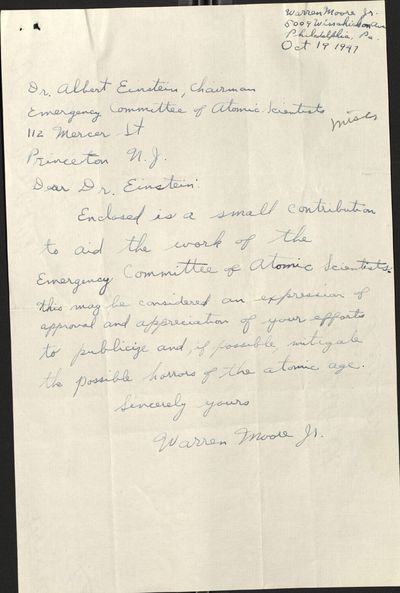 Warren Moore Jr.
5009 Wissahickon Ave
Philadelphia, Pa.
Oct 19 1947
Dr. Albert Einstein, Chairman
Emergency Committee of Atomic Scientists
112 Mercer St
Princeton N.J.
Dear Dr. Einstein:
Enclosed is a small contribution
to aid the work of the
Emergency Committee of Atomic Scientists.
This may be considered an expression of
approval and appreciation of your efforts
to publicize and, if possible, mitigate
the possible horrors of the atomic age.
Sincerely yours
Warren Moore Jr.